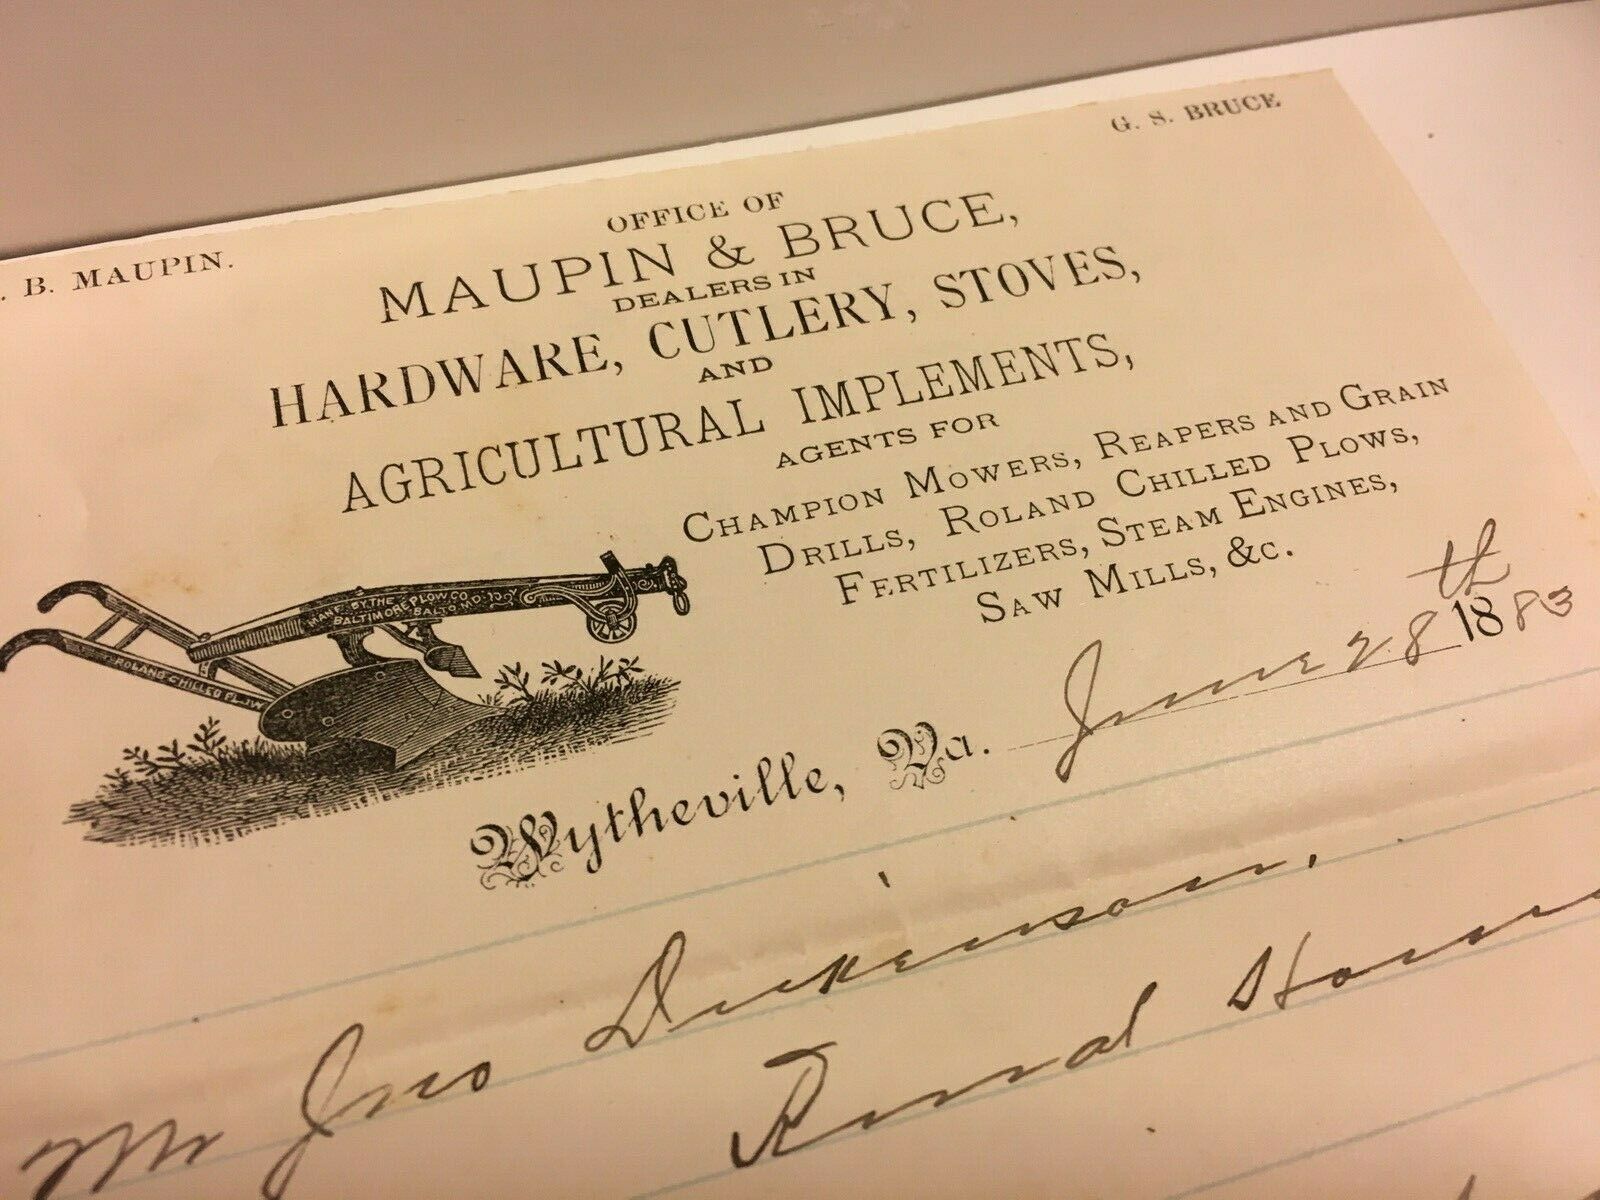 . B. MAUPIN.
G. S. BRUCE
OFFICE OF
MAUPIN & BRUCE,
DEALERS IN
HARDWARE, CUTLERY, STOVES,
AND
AGRICULTURAL IMPLEMENTS,
AGENTS FOR
CHAMPION MOWERS, REAPERS AND GRAIN
DRILLS, ROLAND CHILLED PLOWS,
FERTILIZERS, STEAM ENGINES,
SAW MILLS, &C.
MANF. BY THE
BALTIMORE PLOW CO
BALTO. MD.
ROLAND CHILLED PLOW
Wytheville, Va. June 28th 1883
Mr Jno Dickenson.